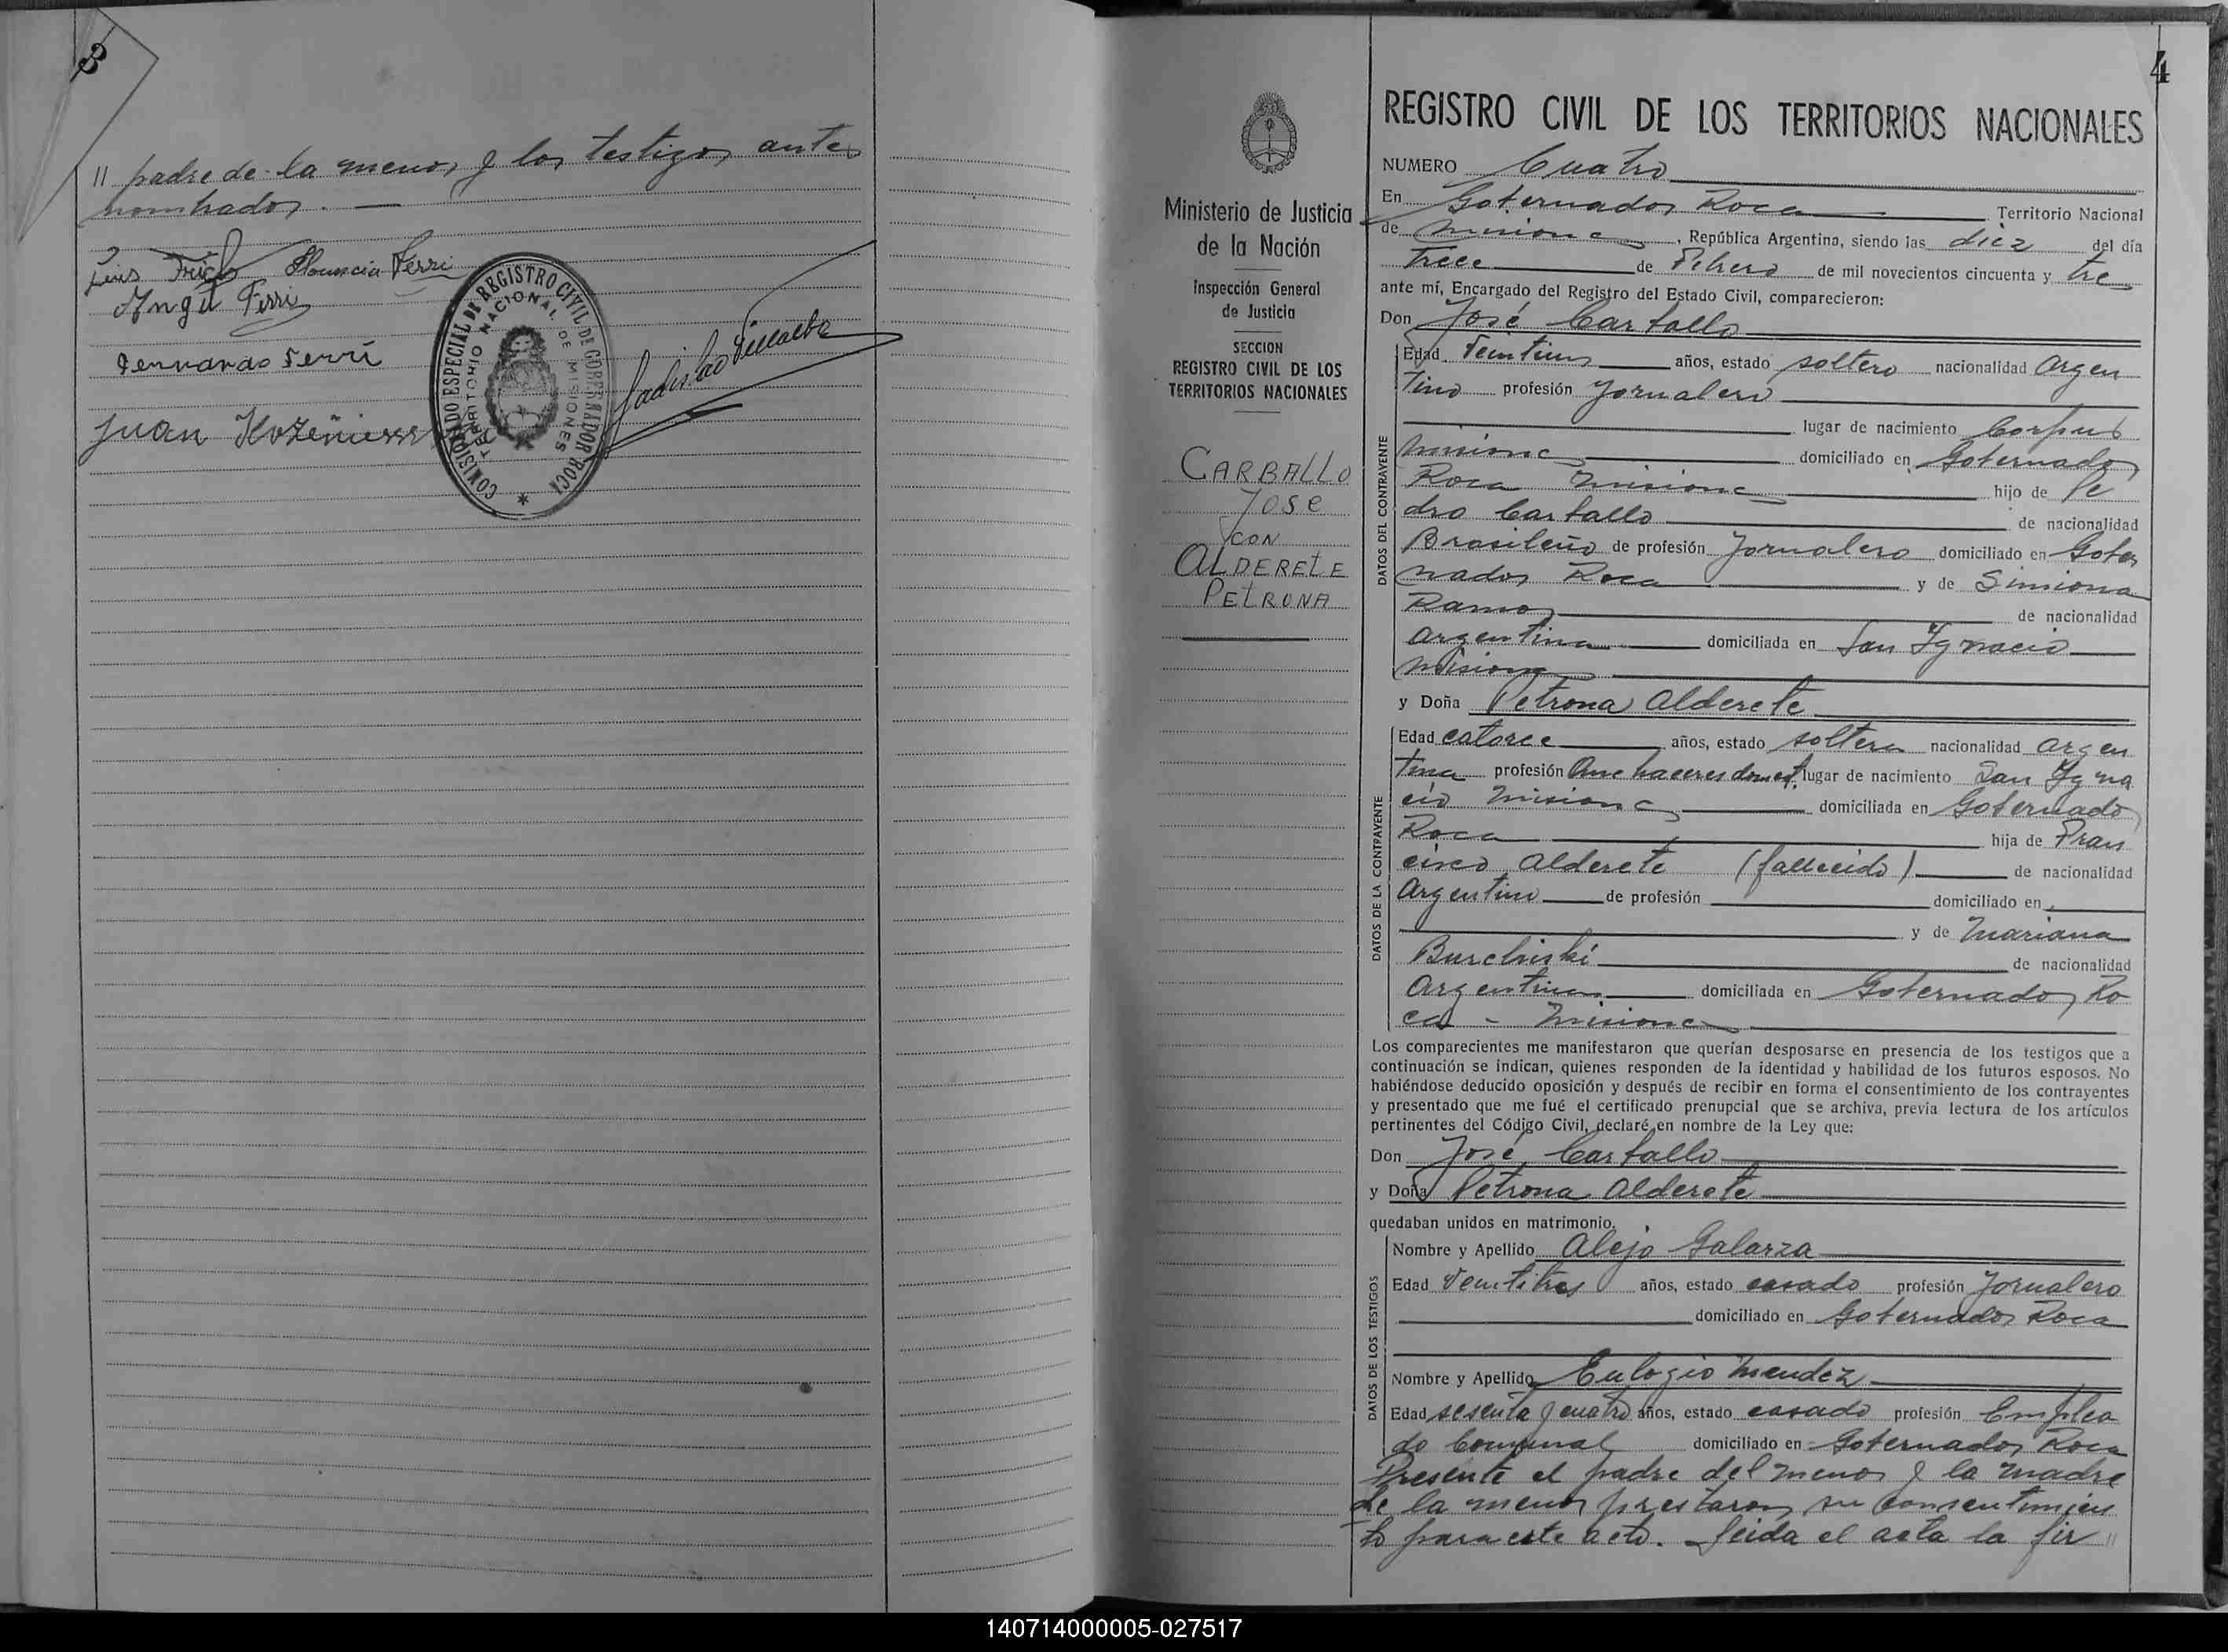 3
// padre de la menor y los testigos antes
nombrados. —
Luis Florencia Ferri
Angel Ferri
Fernando Ferri
Juan
COMISIONADO ESPECIAL DE REGISTRO CIVIL DE GOBERNADOR ROCA
TERRITORIO NACIONAL DE MISIONES
Ladislao Villalba
4
Ministerio de Justicia
de la Nación
Inspección General
de Justicia
SECCION
REGISTRO CIVIL DE LOS
TERRITORIOS NACIONALES
CARBALLO
JOSE
CON
ALDERETE
PETRONA
REGISTRO CIVIL DE LOS TERRITORIOS NACIONALES
NUMERO Cuatro
En Gobernador Roca Territorio Nacional
de Misiones, República Argentina, siendo las diez del día
trece de Febrero de mil novecientos cincuenta y tres
ante mí, Encargado del Registro del Estado Civil, comparecieron:
Don José Carballo
DATOS DEL CONTRAYENTE
Edad Veintiun años, estado soltero nacionalidad argen
tino profesión Jornalero
lugar de nacimiento Corpus
Misiones domiciliado en Gobernador
Roca Misiones hijo de Pe
dro Carballo de nacionalidad
Brasileño de profesión Jornalero domiciliado en Gober
nador Roca y de Simiona
Ramos de nacionalidad
argentina domiciliada en San Ygnacio
Misiones
y Doña Petrona Alderete
DATOS DE LA CONTRAYENTE
Edad catorce años, estado soltera nacionalidad argen
tina profesión Que haceres domest. lugar de nacimiento San Ygna
cio Misiones domiciliada en Gobernador
Roca hija de Fran
cisco Alderete (fallecido) de nacionalidad
argentino de profesión domiciliado en
y de Mariana
Burchiski de nacionalidad
argentina domiciliada en Gobernador Ro
ca - Misiones
Los comparecientes me manifestaron que querían desposarse en presencia de los testigos que a
continuación se indican, quienes responden de la identidad y habilidad de los futuros esposos. No
habiéndose deducido oposición y después de recibir en forma el consentimiento de los contrayentes
y presentado que me fué el certificado prenupcial que se archiva, previa lectura de los artículos
pertinentes del Código Civil, declaré en nombre de la Ley que:
Don José Carballo
y Doña Petrona Alderete
quedaban unidos en matrimonio.
DATOS DE LOS TESTIGOS
Nombre y Apellido Alejo Galarza
Edad Veintitres años, estado casado profesión Jornalero
domiciliado en Gobernador Roca
Nombre y Apellido Eulogio Mendez
Edad sesenta y cuatro años, estado casado profesión Emplea
do Comunal domiciliado en Gobernador Roca
Presente el padre del menor y la madre
de la menor prestaron su consentimien
to para este acto. Leida el acta la fir //
140714000005-027517